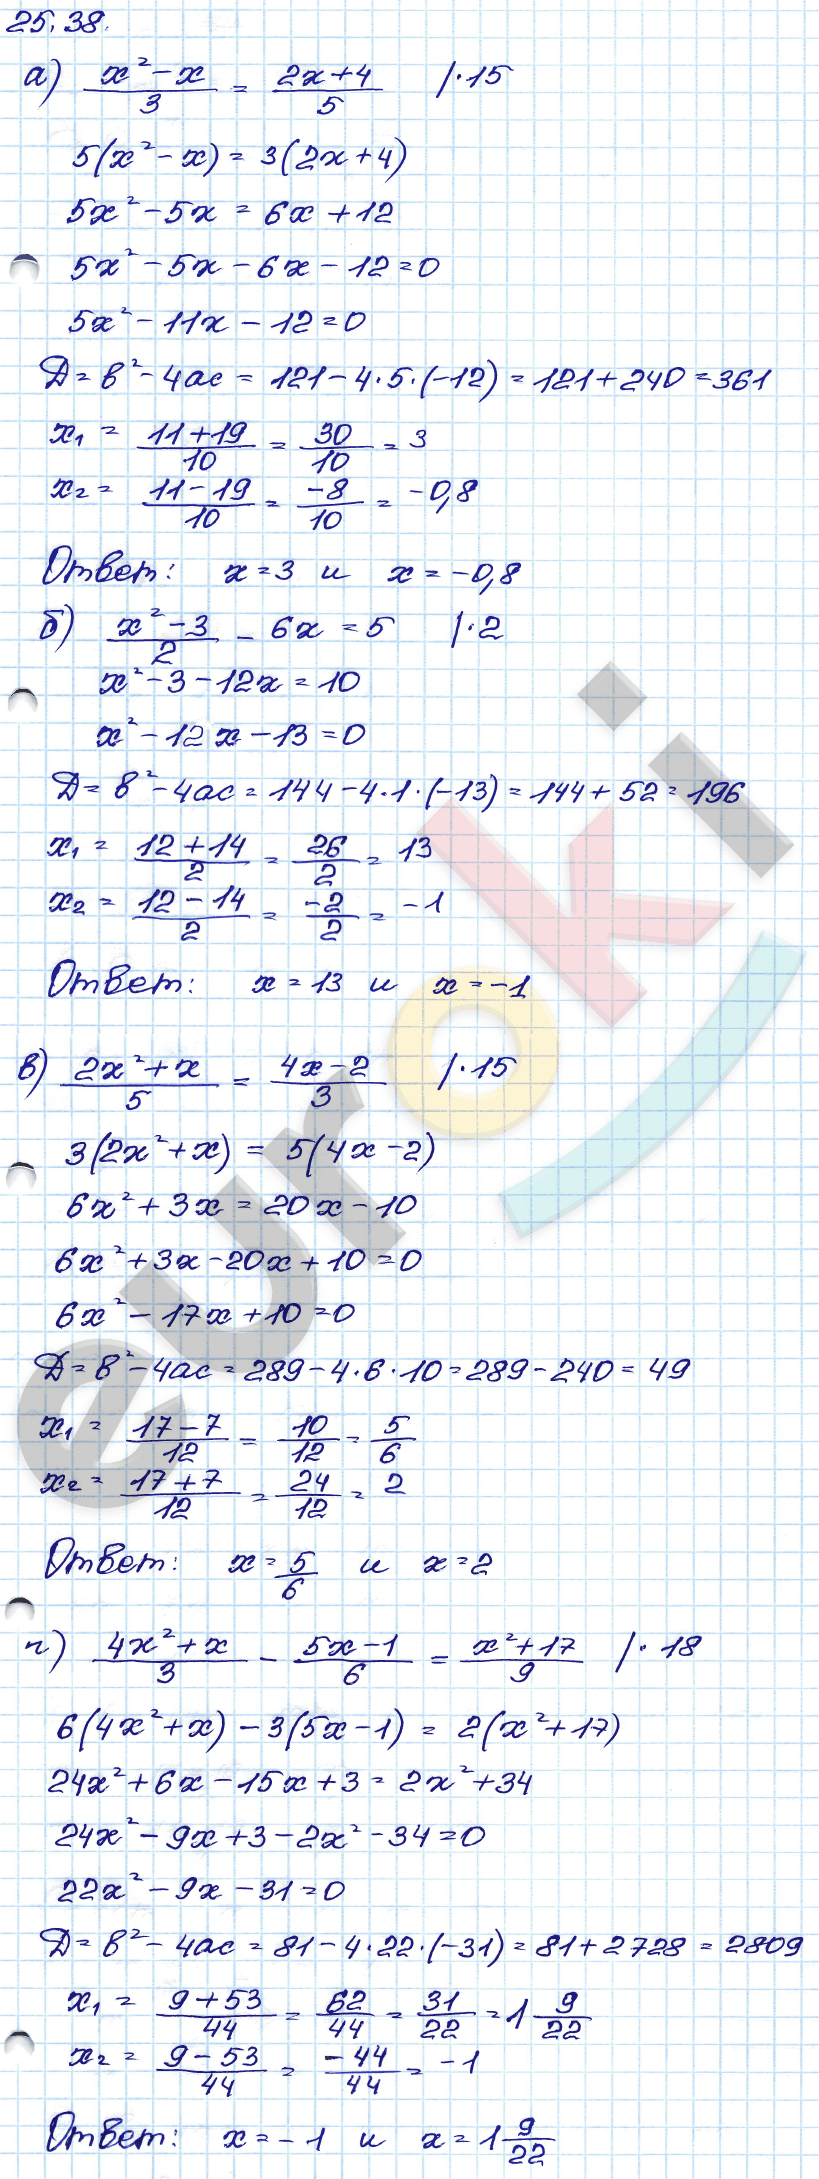 25.38.
а) (x² - x)/3 = (2x + 4)/5 |·15
5(x² - x) = 3(2x + 4)
5x² - 5x = 6x + 12
5x² - 5x - 6x - 12 = 0
5x² - 11x - 12 = 0
D = b² - 4ac = 121 - 4·5·(-12) = 121 + 240 = 361
x₁ = (11 + 19)/10 = 30/10 = 3
x₂ = (11 - 19)/10 = -8/10 = -0,8
Ответ: x = 3 и x = -0,8
б) (x² - 3)/2 - 6x = 5 |·2
x² - 3 - 12x = 10
x² - 12x - 13 = 0
D = b² - 4ac = 144 - 4·1·(-13) = 144 + 52 = 196
x₁ = (12 + 14)/2 = 26/2 = 13
x₂ = (12 - 14)/2 = -2/2 = -1
Ответ: x = 13 и x = -1
в) (2x² + x)/5 = (4x - 2)/3 |·15
3(2x² + x) = 5(4x - 2)
6x² + 3x = 20x - 10
6x² + 3x - 20x + 10 = 0
6x² - 17x + 10 = 0
D = b² - 4ac = 289 - 4·6·10 = 289 - 240 = 49
x₁ = (17 - 7)/12 = 10/12 = 5/6
x₂ = (17 + 7)/12 = 24/12 = 2
Ответ: x = 5/6 и x = 2
г) (4x² + x)/3 - (5x - 1)/6 = (x² + 17)/9 |·18
6(4x² + x) - 3(5x - 1) = 2(x² + 17)
24x² + 6x - 15x + 3 = 2x² + 34
24x² - 9x + 3 - 2x² - 34 = 0
22x² - 9x - 31 = 0
D = b² - 4ac = 81 - 4·22·(-31) = 81 + 2728 = 2809
x₁ = (9 + 53)/44 = 62/44 = 31/22 = 1 9/22
x₂ = (9 - 53)/44 = -44/44 = -1
Ответ: x = -1 и x = 1 9/22
euroki